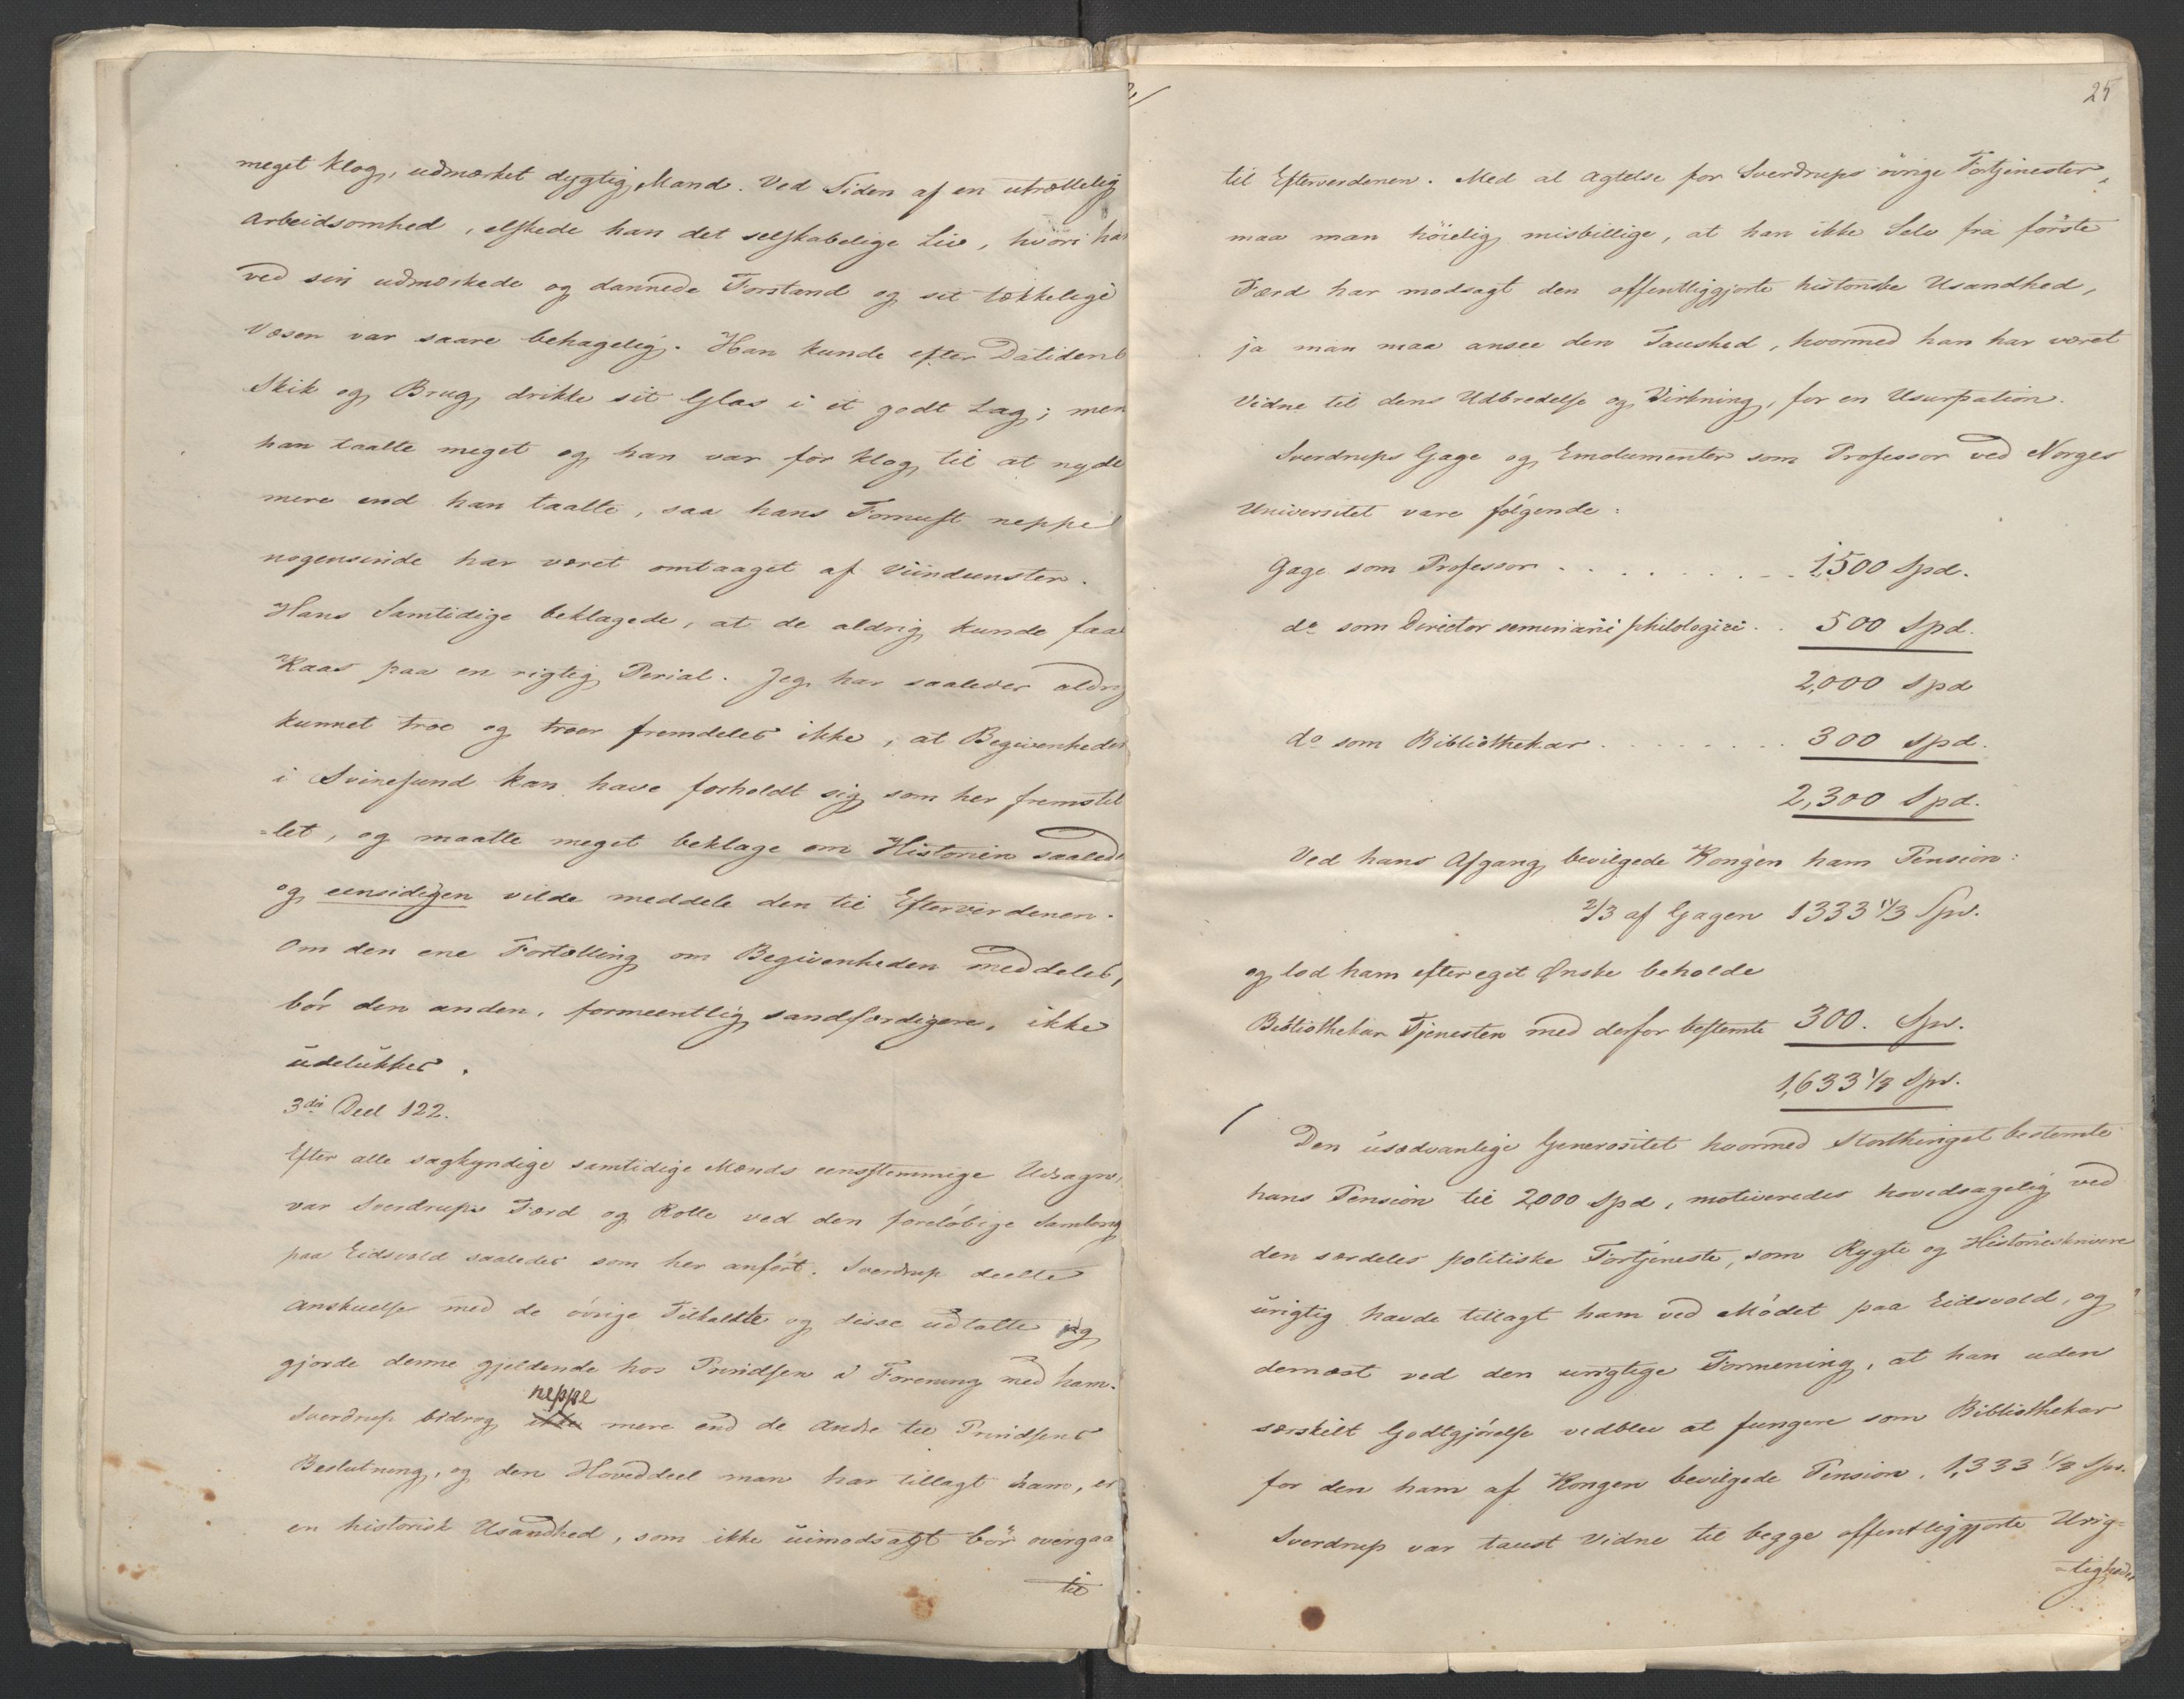 meget klog, udmærket dygtig Mand. Ved Siden af en utrættelig
Arbeidsomhed, elskede han det selskabelige Liv, hvori han
ved sin udmærkede og dannede Forstand og sit tækkelige
Væsen var saare behagelig. Han kunde efter Datidens
Skik og Brug, drikke sit Glas i et godt Lag; men
han taalte meget og han var for klog til at nyde
mere end han taalte, saa hans Fornuft neppe
nogensinde har været omtaaget af Viindunster.
Hans Samtidige beklagede, at de aldrig kunde faa
Kaas paa en rigtig Perial. Jeg har saaledes aldrig
kunnet troe og troer fremdeles ikke, at Begivenheden
i Svinesund kan have forholdt sig som her fremstil
=let, og maatte meget beklage om Historien saaledes
og eensidigen vilde meddele den til Efterverdenen.
Om den ene Fortælling om Begivenheden meddeles,
bór den anden, formeentlig sandfærdigere, ikke
udelukkes.
3die Deel 122.
Efter alle sagkyndige samtidige Mænds eensstemmige Udsagn,
var Sverdrups Færd og Rolle ved den forelóbige Samling
paa Eidsvold saaledes som her anfórt. Sverdrup deelte
Anskuelse med de óvrige Tilkaldte og disse udtalte og
gjorde denne gjeldende hos Prindsen i Forening med ham.
neppe
Sverdrup bidrog ikke mere end de Andre til Prindsens
Beslutning, og den Hoveddeel man har tillagt ham, er
en historisk Usandhed, som ikke uimodsagt bór overgaa
til
25
til Efterverdenen. Med al Agtelse for Sverdrups óvrige Fortjenester,
maa man hóielig misbillige, at han ikke Selv fra fórste
Færd har modsagt den offentliggjorte historiske Usandhed,
ja man maa ansee den Taushed, hvormed han har været
Vidne til dens Udbredelse og Virkning, for en Usurpation.
Sverdrups Gage og Emolumenter som Professor ved Norges
Universitet vare fólgende:
Gage som Professor . . . . . . . . 1,500 Spd.
do som Director seminarii philologici . . 500 Spd.
2,000 Spd
do som Bibliothekar . . . . . . . . 300 Spd.
2,300 Spd.
Ved hans Afgang bevilgede Kongen ham Pension:
2/3 af Gagen 1333 1/3 Spd.
og lod ham efter eget Ønske beholde
Bibliothekar Tjenesten med derfor bestemte 300. Spd.
1,633 1/3 Spd.
Den usædvanlige Generositet hvormed Storthinget bestemte
hans Pension til 2,000 Spd, motiveredes hovedsagelig ved
den særdeles politiske Fortjeneste, som Rygte og Historieskrivere
urigtig havde tillagt ham ved Módet paa Eidsvold, og
dernæst ved den urigtige Formening, at han uden
særskilt Godtgjórelse vedblev at fungere som Bibliothekar
for den ham af Kongen bevilgede Pension, 1,333 1/3 Spd.
Sverdrup var taust Vidne til begge offentliggjorte Urig=
=tigheder